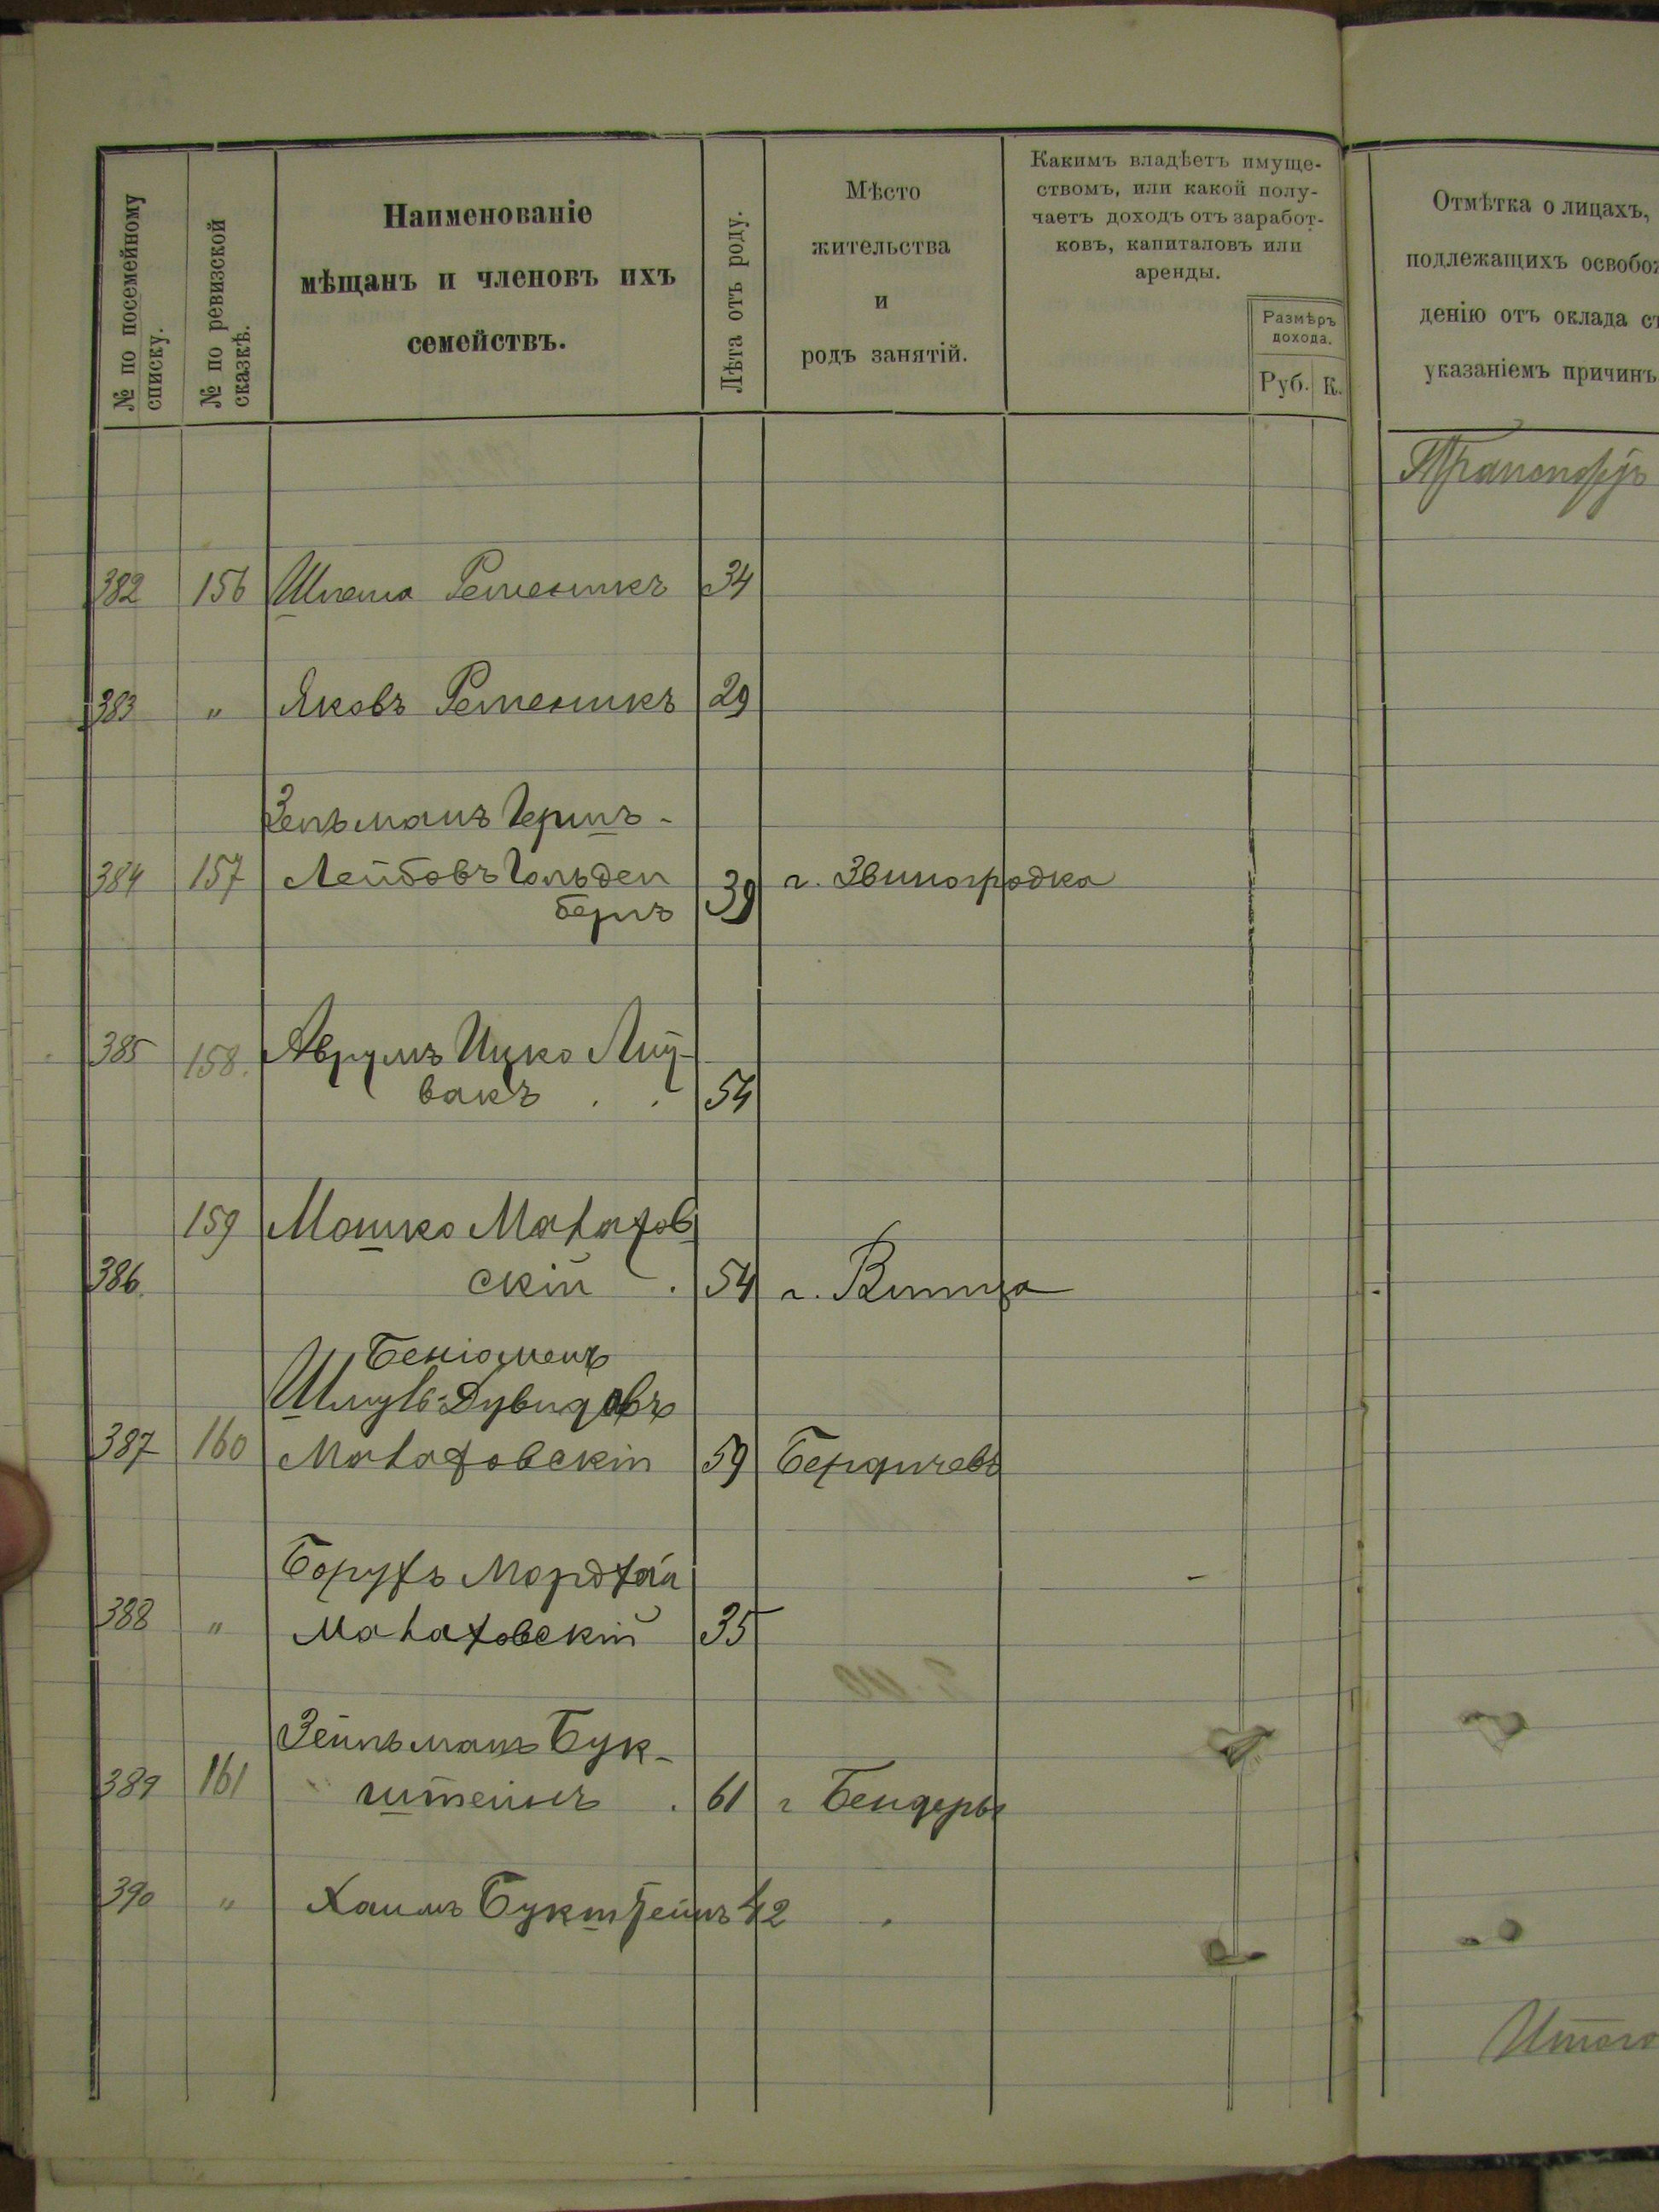 № по посемейному списку.
№ по ревизской сказкѣ.
Наименованіе
мѣщанъ и членовъ ихъ
семействъ.
Лѣта отъ роду.
Мѣсто
жительства
и
родъ занятій.
Какимъ владѣетъ имуще-
ствомъ, или какой полу-
чаетъ доходъ отъ заработ-
ковъ, капиталовъ или
аренды.
Размѣръ
дохода.
Руб. К.
Отмѣтка о лицахъ,
подлежащихъ освобож
денію отъ оклада съ
указаніемъ причинъ
382 156 Шлема Ременикъ 34
383 " Яковъ Ременикъ 29
Зельманъ Гершъ-
384 157 Лейбовъ Гольден 39 г. Звиногродка
бергъ
385 158. Аврумъ Ицко
вакъ . . 54
159 Мошко Малахов
386. скій . 54 г.
Беніоменъ
Шмуль-Дувидовъ
387 160 Малаховскій 59 Бердичевъ
Борухъ Мордхай
388 " Малаховскій 35
Зейльманъ Бук-
389 161 штейнъ . 61 г Бендеры
390 " Хаимъ Букштейнъ 42
Итого